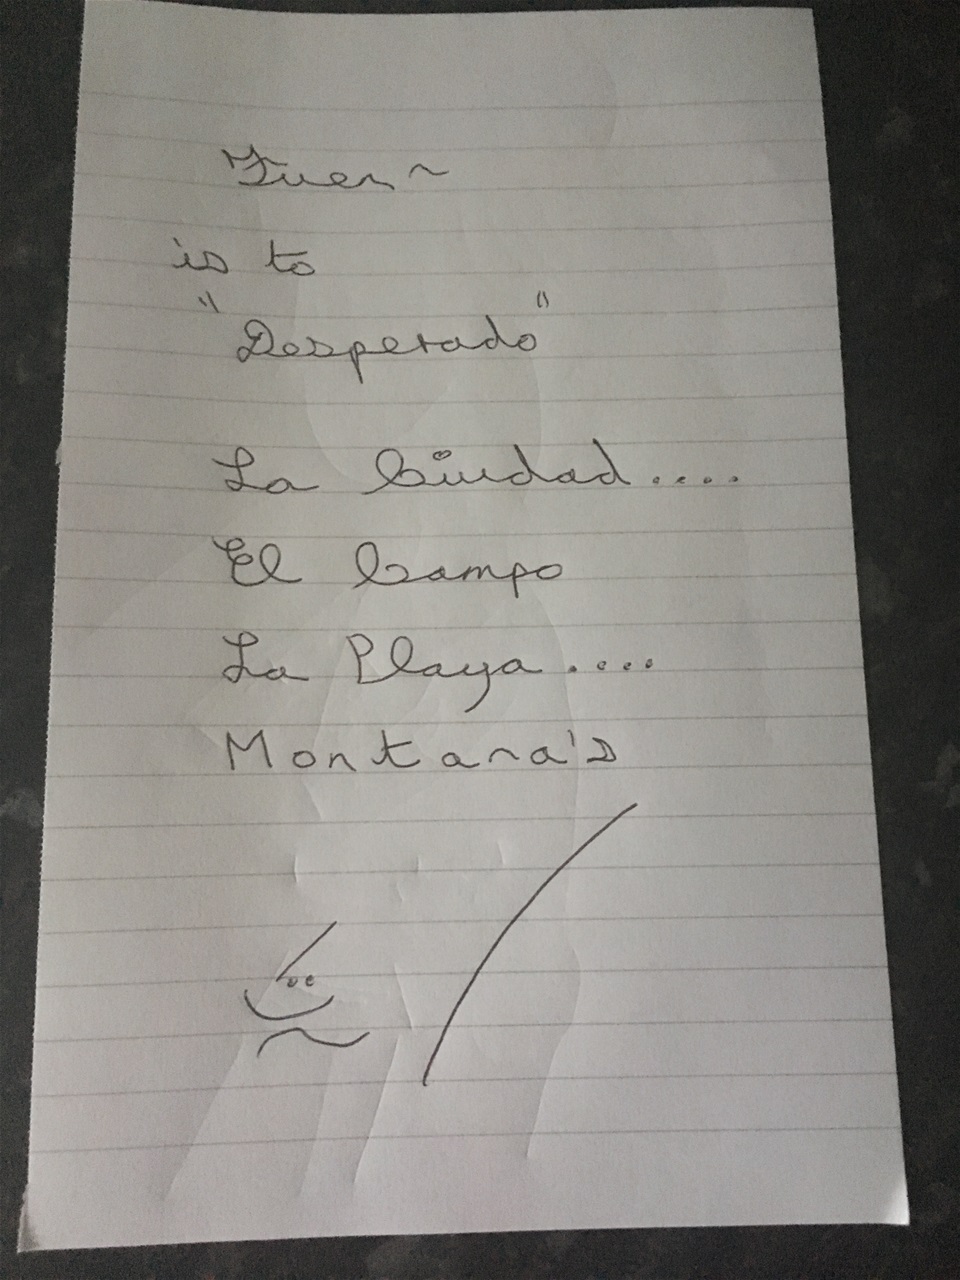 is to
"Desperado"
La Ciudad....
El Campo
La Playa....
Montana's